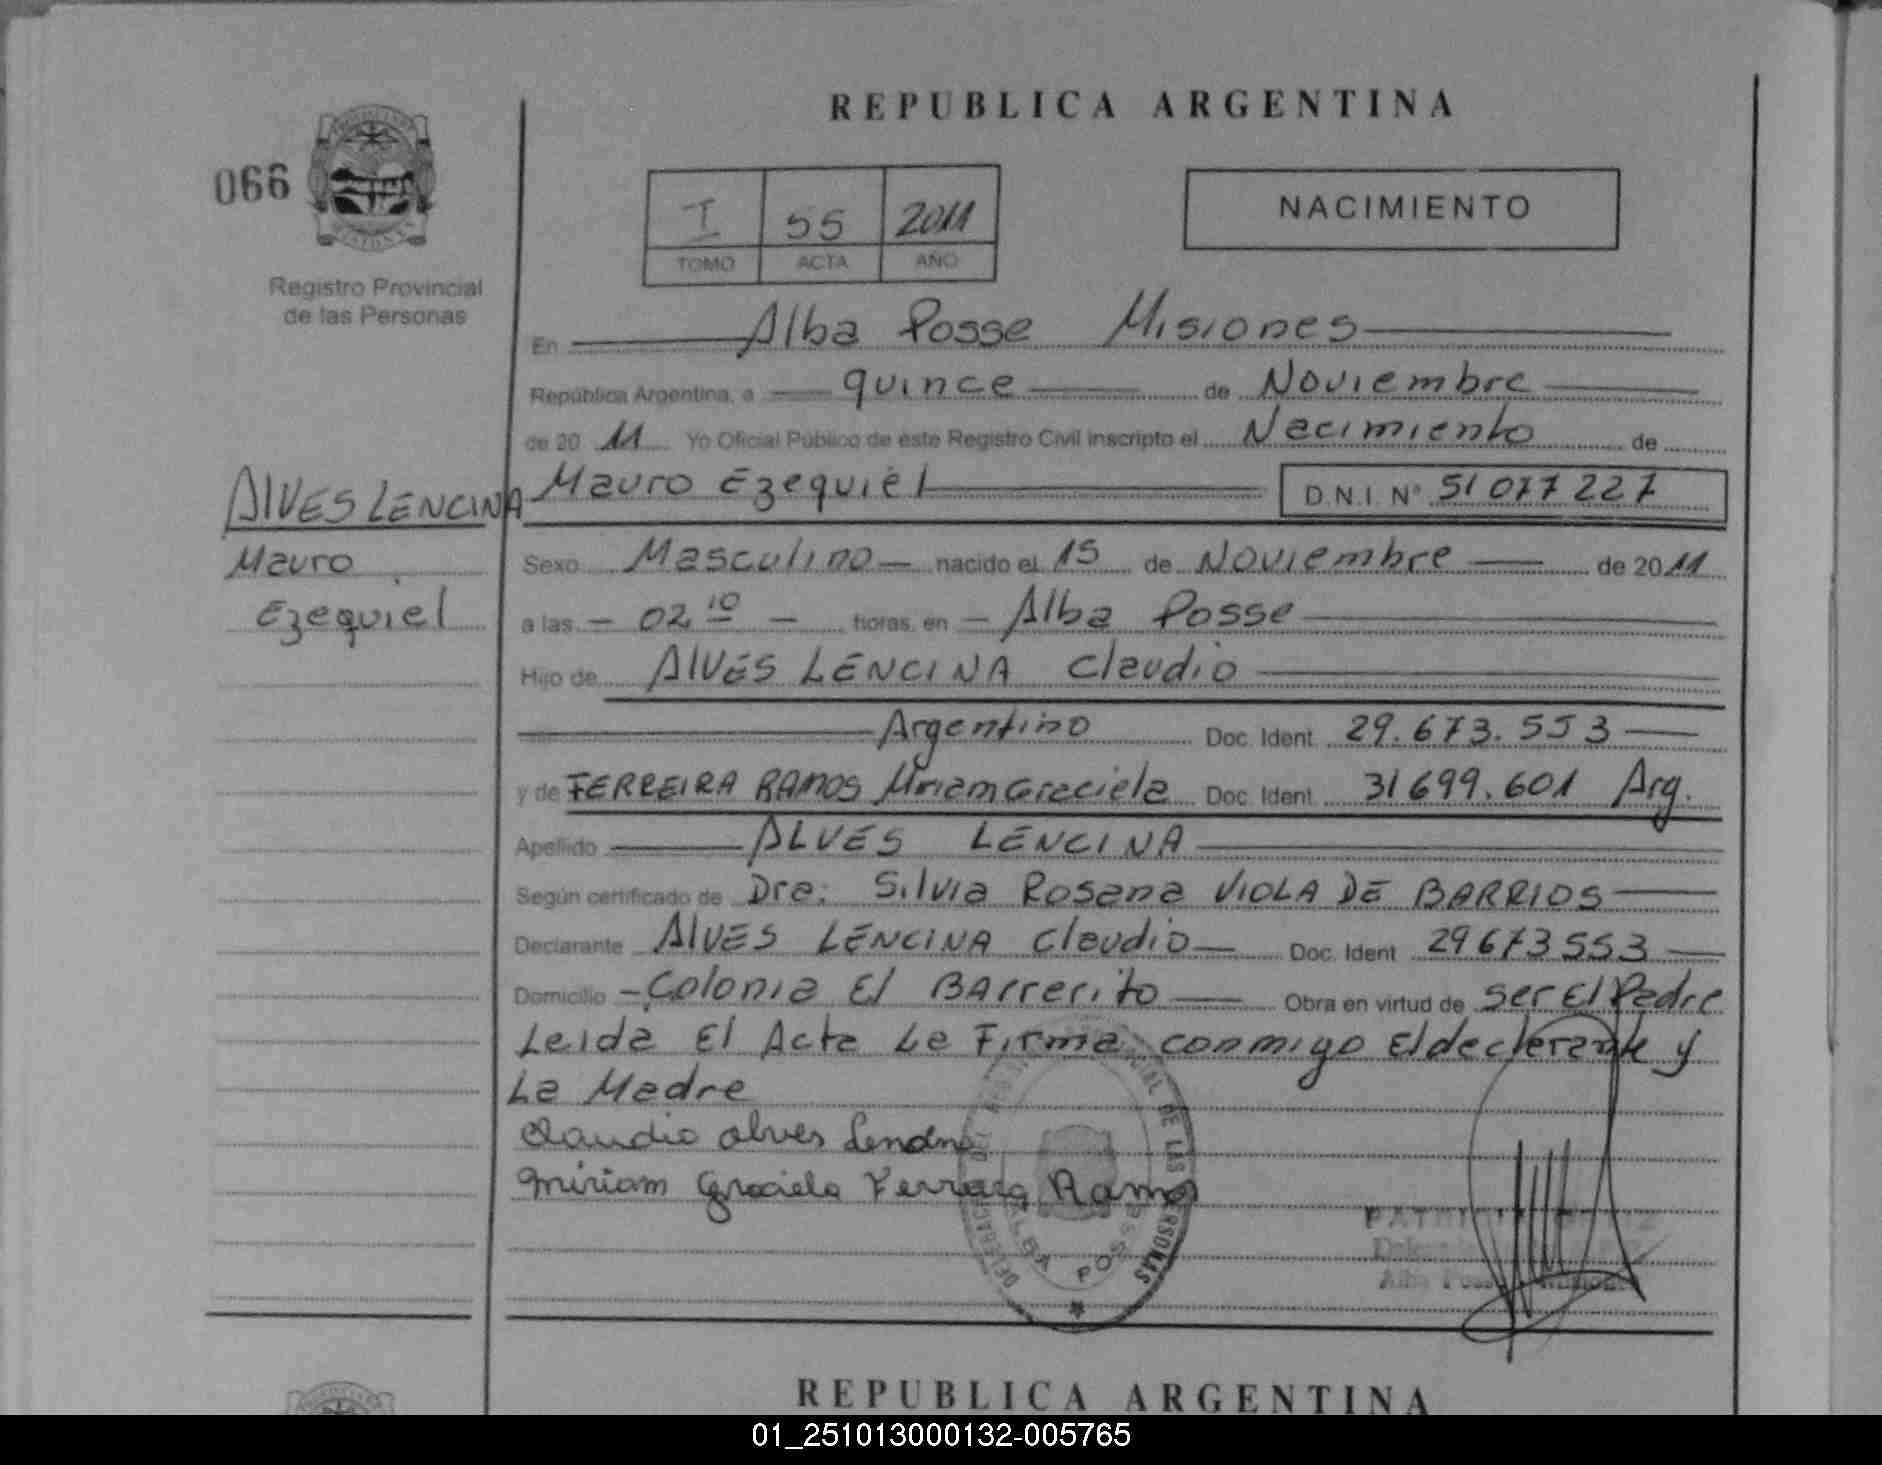 REPUBLICA ARGENTINA
066
I 55 2011
TOMO ACTA AÑO
NACIMIENTO
Registro Provincial
de las Personas
En Alba Posse Misiones
República Argentina, a quince de Noviembre
de 20 11 Yo Oficial Público de este Registro Civil inscripto el Nacimiento de
Mauro Ezequiel D.N.I. Nº 51 077 227
ALVES LENCINA
Mauro
Ezequiel
Sexo Masculino nacido el 15 de Noviembre de 2011
a las - 02 10 - horas, en - Alba Posse
Hijo de ALVES LENCINA Claudio
Argentino Doc. Ident 29.673.553
y de FERREIRA RAMOS Miriam Graciela Doc. Ident 31 699.601 Arg.
Apellido ALVES LENCINA
Según certificado de Dra: Silvia Rosana VIOLA DE BARRIOS
Declarante ALVES LENCINA Claudio Doc. Ident 29673553
Domicilio - Colonia El Barrerito Obra en virtud de ser El Padre
Leida El Acta La Firma conmigo El declarante y
La Madre
Claudio alves Lencina
Miriam Graciela Ferreira Ramos
DE LAS PERSONAS
ALBA POSSE
REPUBLICA ARGENTINA
01_251013000132-005765